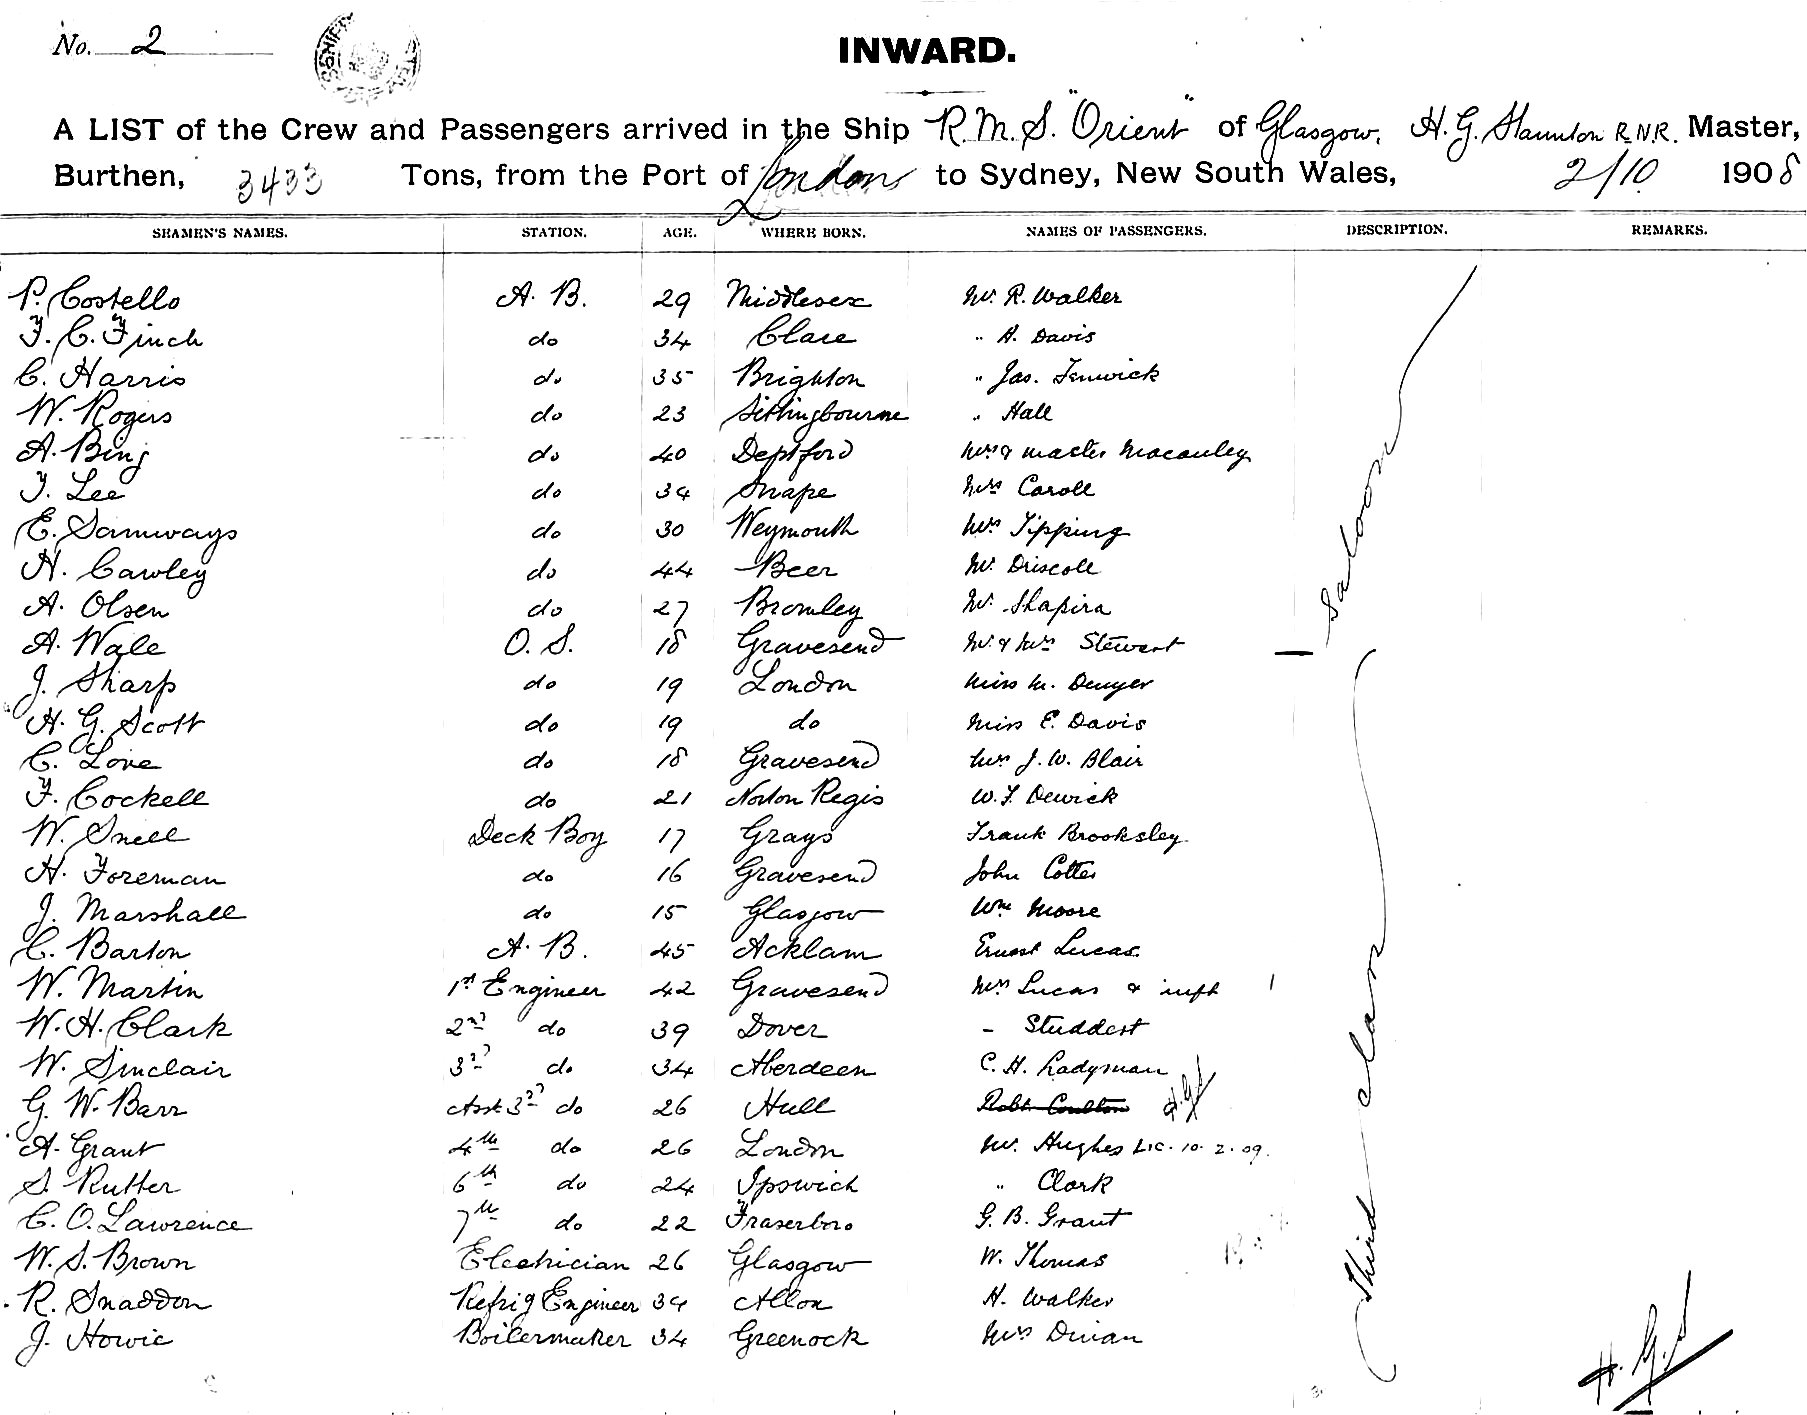 No. 2
INWARD.
A LIST of the Crew and Passengers arrived in the Ship R.M.S. "Orient" of Glasgow, H. G. Staunton R.N.R. Master,
Burthen, 3433 Tons, from the Port of London to Sydney, New South Wales, 2/10 1908
SEAMEN'S NAMES. STATION. AGE. WHERE BORN. NAMES OF PASSENGERS. DESCRIPTION. REMARKS.
P. Costello A. B. 29 Middlesex Mr. R. Walker
F. C. Finch do 34 Clare " A. Davis
C. Harris do 35 Brighton " Jas. Fenwick
W. Rogers do 23 Sittingbourne " Hall
A. Bing do 40 Deptford Mrs & Master Macauley
F. Lee do 34 Snape Mrs Caroll
E. Samways do 30 Weymouth Mrs Tipping
H. Cawley do 44 Beer Mr. Driscoll
A. Olsen do 27 Bromley Mr. Shapira
A. Wale O. S. 18 Gravesend Mr. & Mrs Stewart
Saloon
J. Sharp do 19 London Miss M. Denyer
H. G. Scott do 19 do Miss E. Davis
C. Love do 18 Gravesend Mrs J. W. Blair
F. Cockell do 21 Norton Regis W. F. Dewick
W. Snell Deck Boy 17 Grays Frank Brooksley
H. Foreman do 16 Gravesend John Cotter
J. Marshall do 15 Glasgow Wm Moore
C. Barton A. B. 45 Acklam Ernest Lucas
W. Martin 1st Engineer 42 Gravesend Mrs Lucas & inft 1
W. H. Clark 2nd do 39 Dover - Studdert
W. Sinclair 3rd do 34 Aberdeen C. H. Ladyman
G. W. Barr Asst 3rd do 26 Hull Robt. Coulton H.G.S
A. Grant 4th do 26 London Mr. Hughes Lic. 10. 2. 09.
S. Rutter 6th do 24 Ipswich " Clark
C. O. Lawrence 7th do 22 Fraserboro G. B. Grant
W. S. Brown Electrician 26 Glasgow W. Thomas
R. Snaddon Refrig Engineer 34 Alloa H. Walker
J. Howie Boilermaker 34 Greenock Mrs Divian
Third class
H. G. S